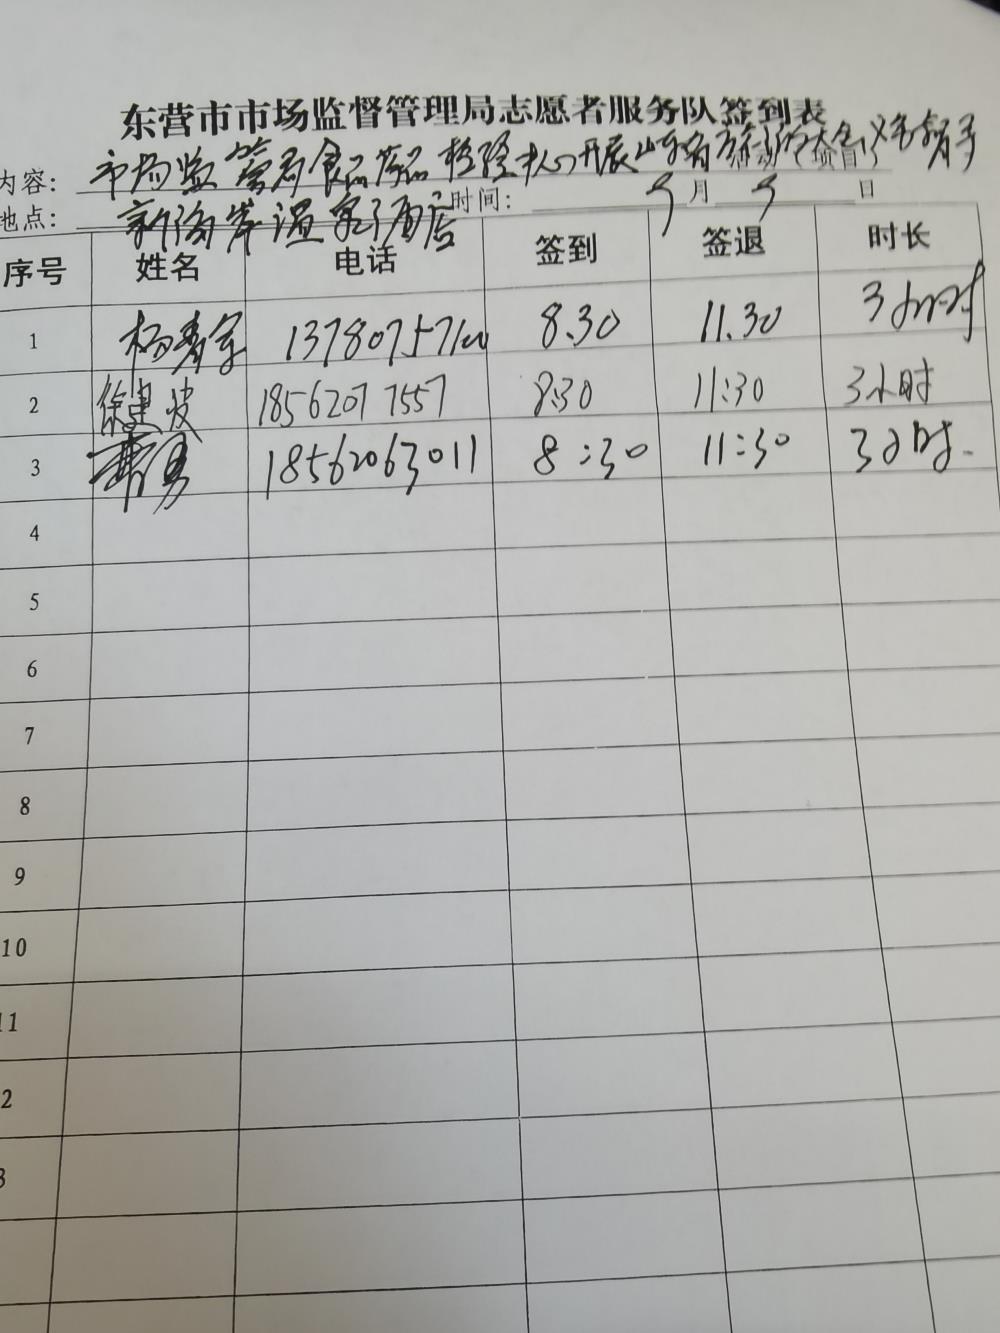 东营市市场监督管理局志愿者服务队签到表
内容: 市场监管局食品药品检验中心开展山东省旅 大会 活动（项目）
地点: 新海岸温泉酒店 时间: 5月5日
序号 姓名 电话 签到 签退 时长
1 杨寿军 137807571 8.30 11.30 3小时
2 徐建波 18562077557 8:30 11:30 3小时
3 18562063011 8:30 11:30 3小时
4
5
6
7
8
9
10
11
2
3